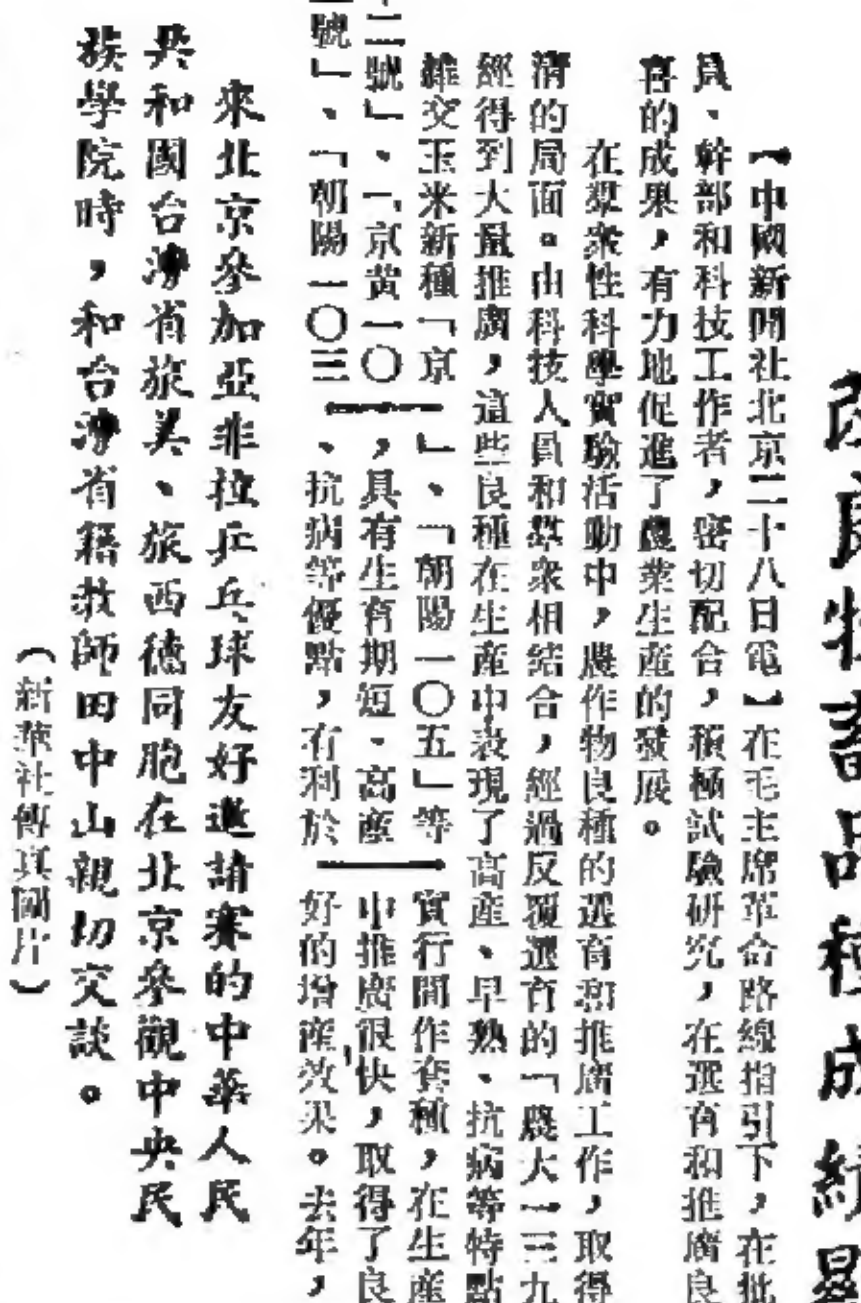 改良牲畜品種成績顯
【中國新聞社北京二十八日電】在毛主席革命路線指引下，在批
員、幹部和科技工作者，密切配合，積極試驗研究，在選育和推廣良
喜的成果，有力地促進了農業生產的發展。
在羣衆性科學實驗活動中，農作物良種的選育和推廣工作，取得
清的局面。由科技人員和羣衆相結合，經過反覆選育的「農大一三九
經得到大量推廣，這些良種在生產中表現了高產、早熟、抗病等特點
雜交玉米新種「京
二號」、「京黃一〇
號」、「朝陽一〇三
」、「朝陽一〇五」等
，具有生育期短、高產
、抗病等優點，有利於
實行間作套種，在生產
中推廣很快，取得了良
好的增產效果。去年，
來北京參加亞非拉乒乓球友好邀請賽的中華人民
共和國台灣省旅美、旅西德同胞在北京參觀中央民
族學院時，和台灣省籍教師田中山親切交談。
（新華社傳真圖片）